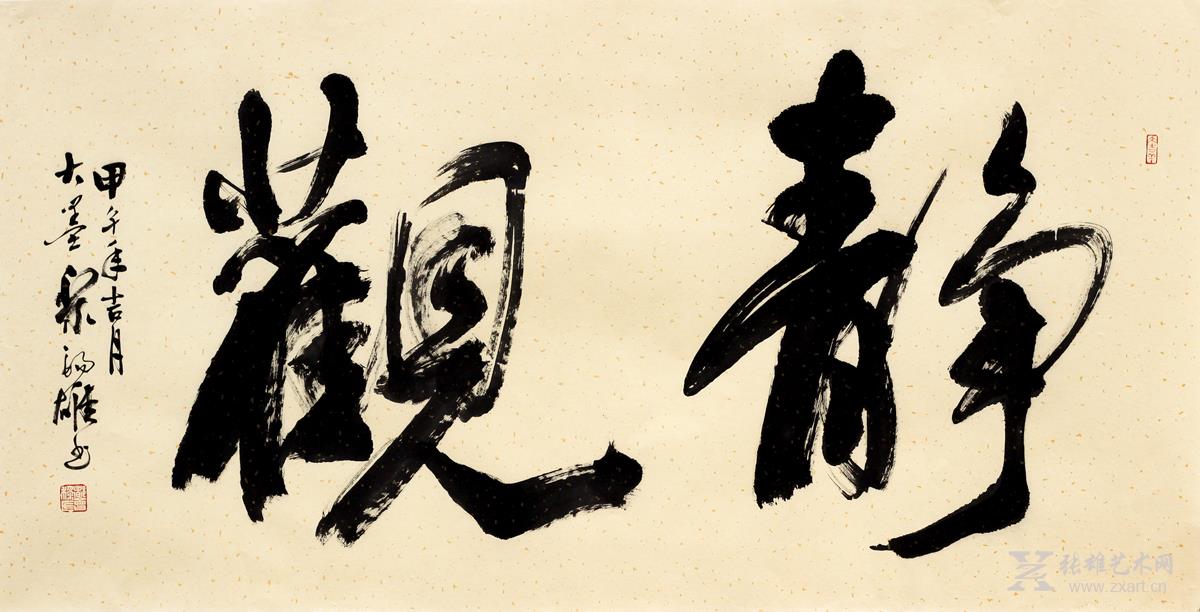 静觀
甲午年吉月
大墨 雄书
张雄艺术网
www.zxart.cn